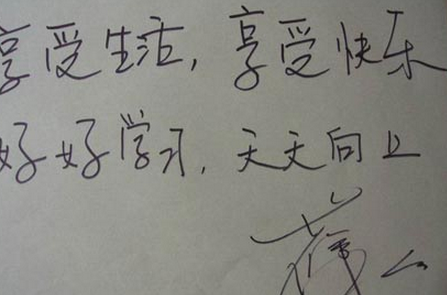 享受生活，享受快乐
好好学习，天天向上